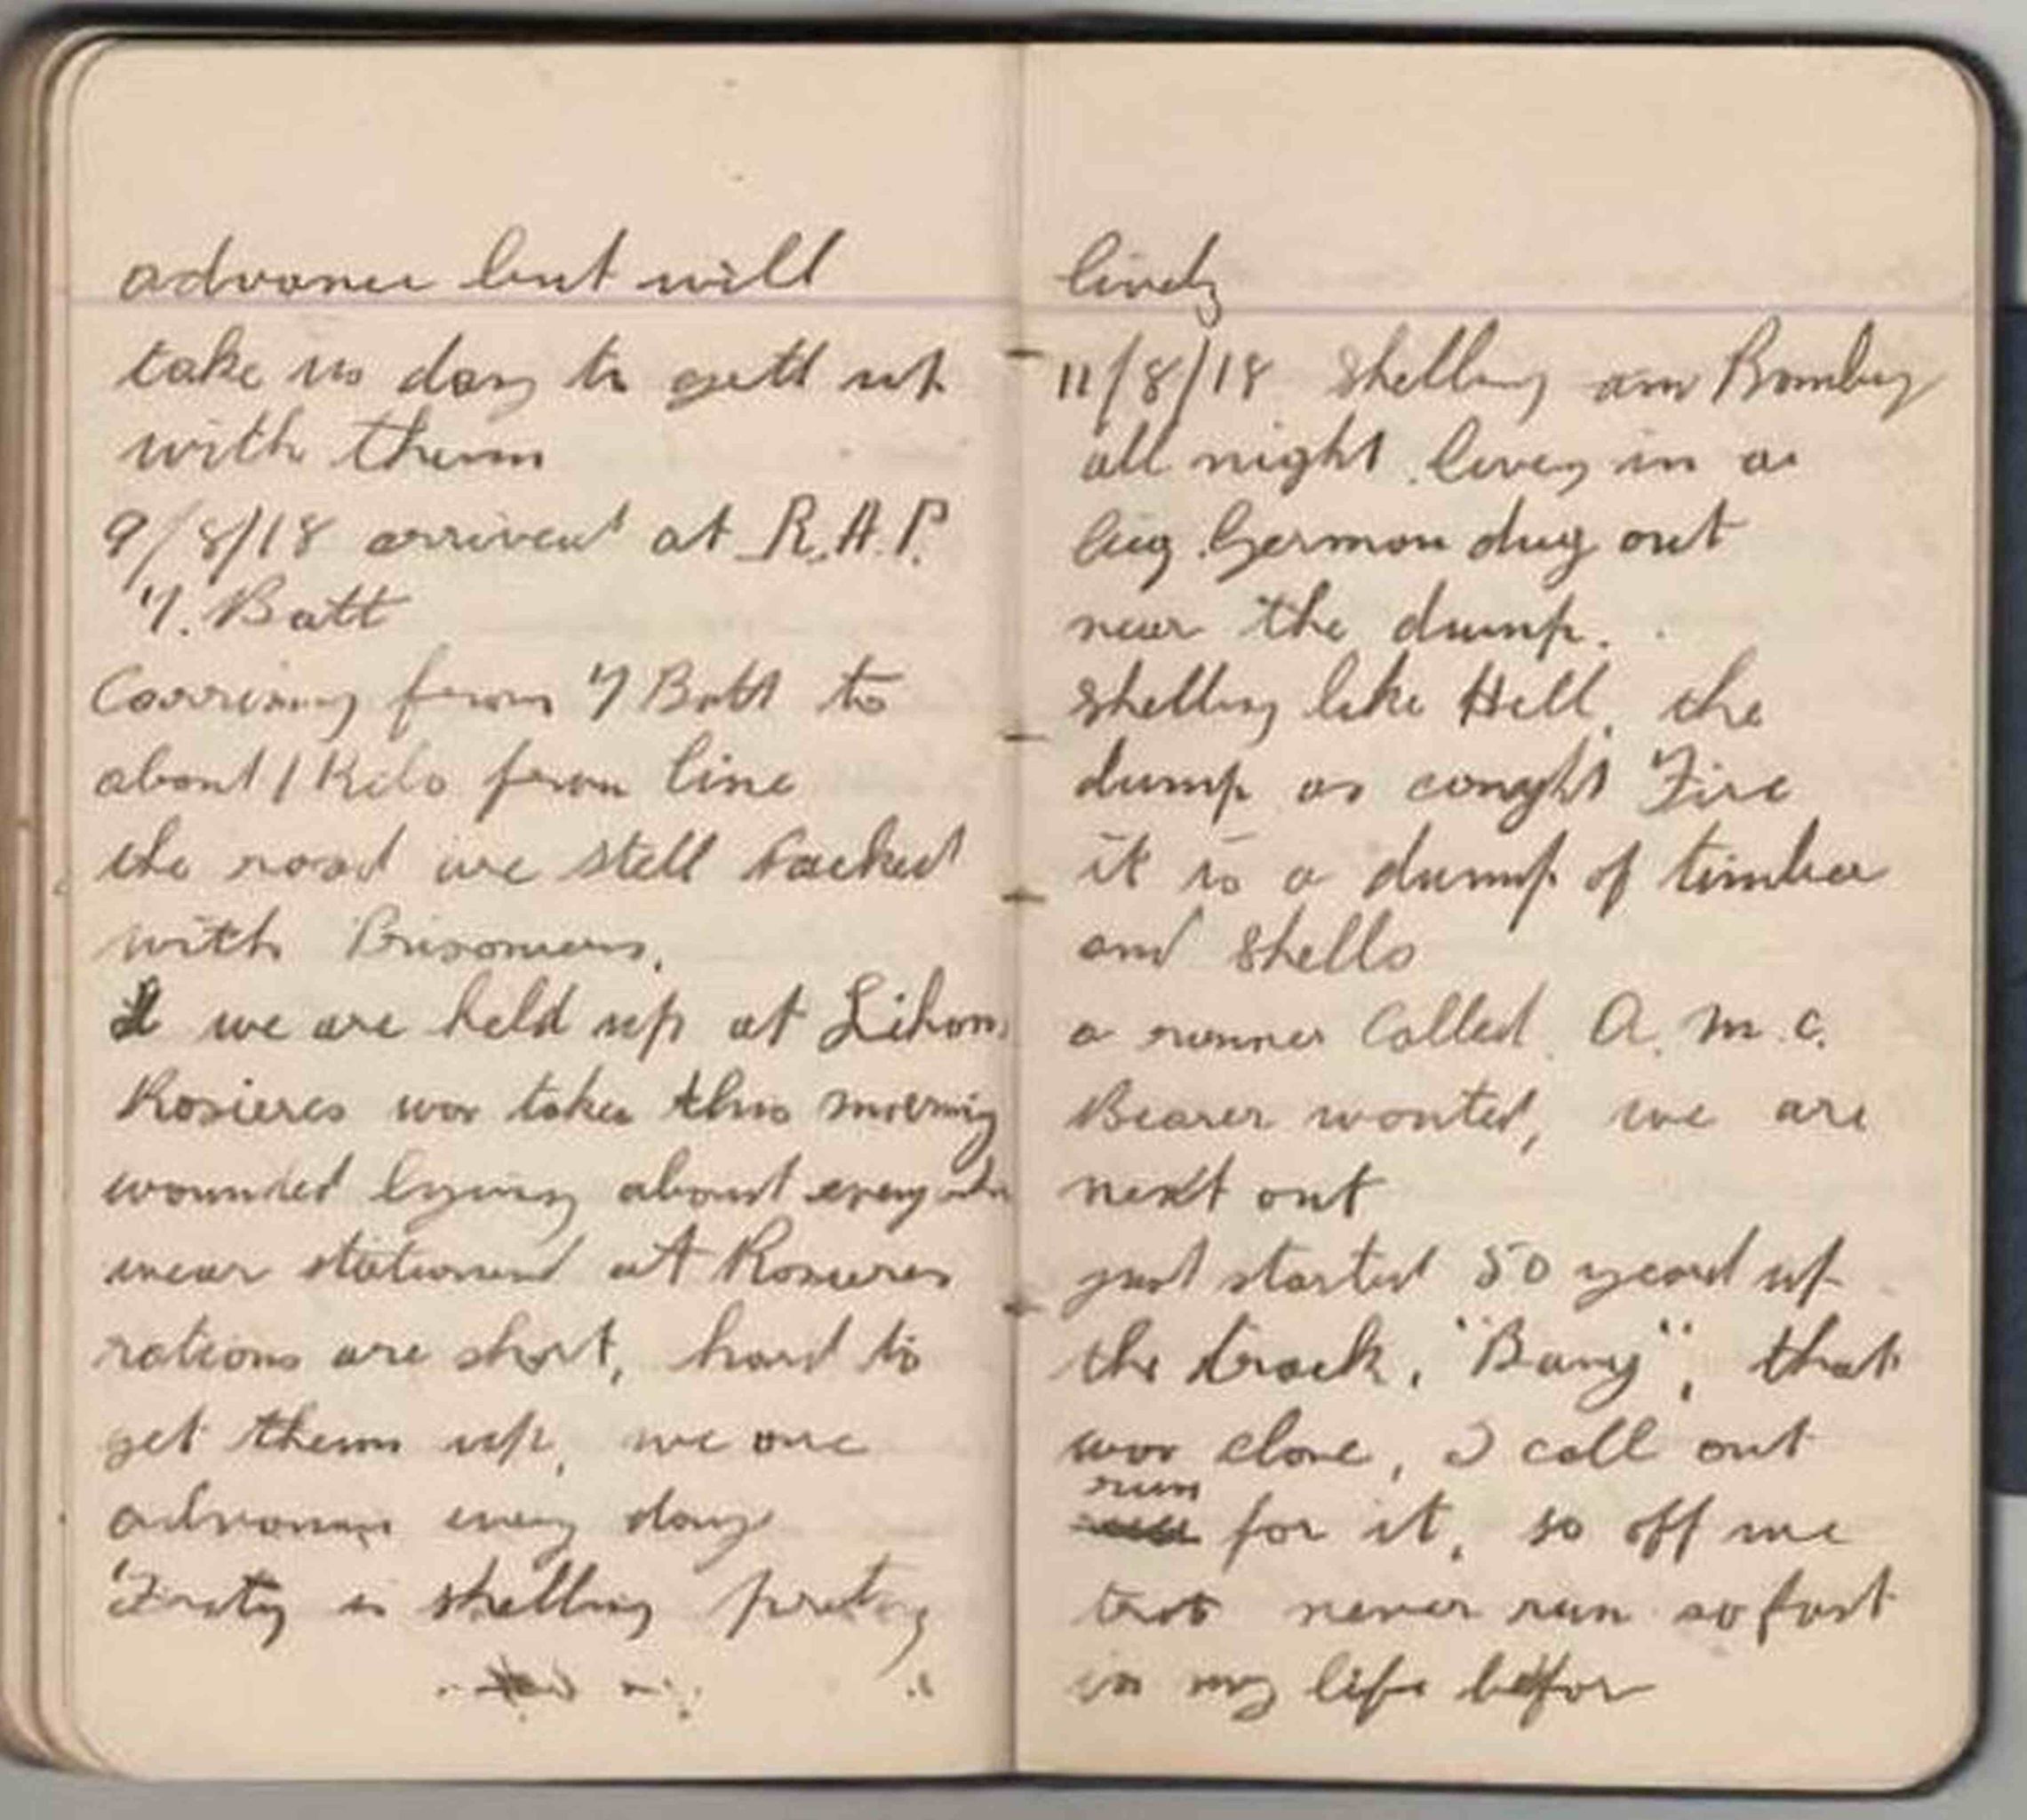 advance but will
take us day to gett up
with themm
9/8/18 arrived at R.A.P.
7. Batt
Carriing from 7 Batt to
about 1 Kilo from line
the road are still Packed
with Prisoners.
we are held up at Lihons
Rosieres was taken this morning
wounded lying about every
wear stationed at Rosieres
rations are short, hard to
get themm up, we are
advancing every day
Fritz is shelling pretty
lively
11/8/18 Shelling an Bombing
all night. living in a
big German dug out
near the dump.
Shelling like Hell, the
dump as caught Fire
it is a dump of timber
and Shells
a runner Called. A. M. C.
Bearer wanted, we are
next out
just started 50 yeard up
the track, "Bang", that
was close, I call out
run
for it, so off we
trot never run so fast
in my life beffor